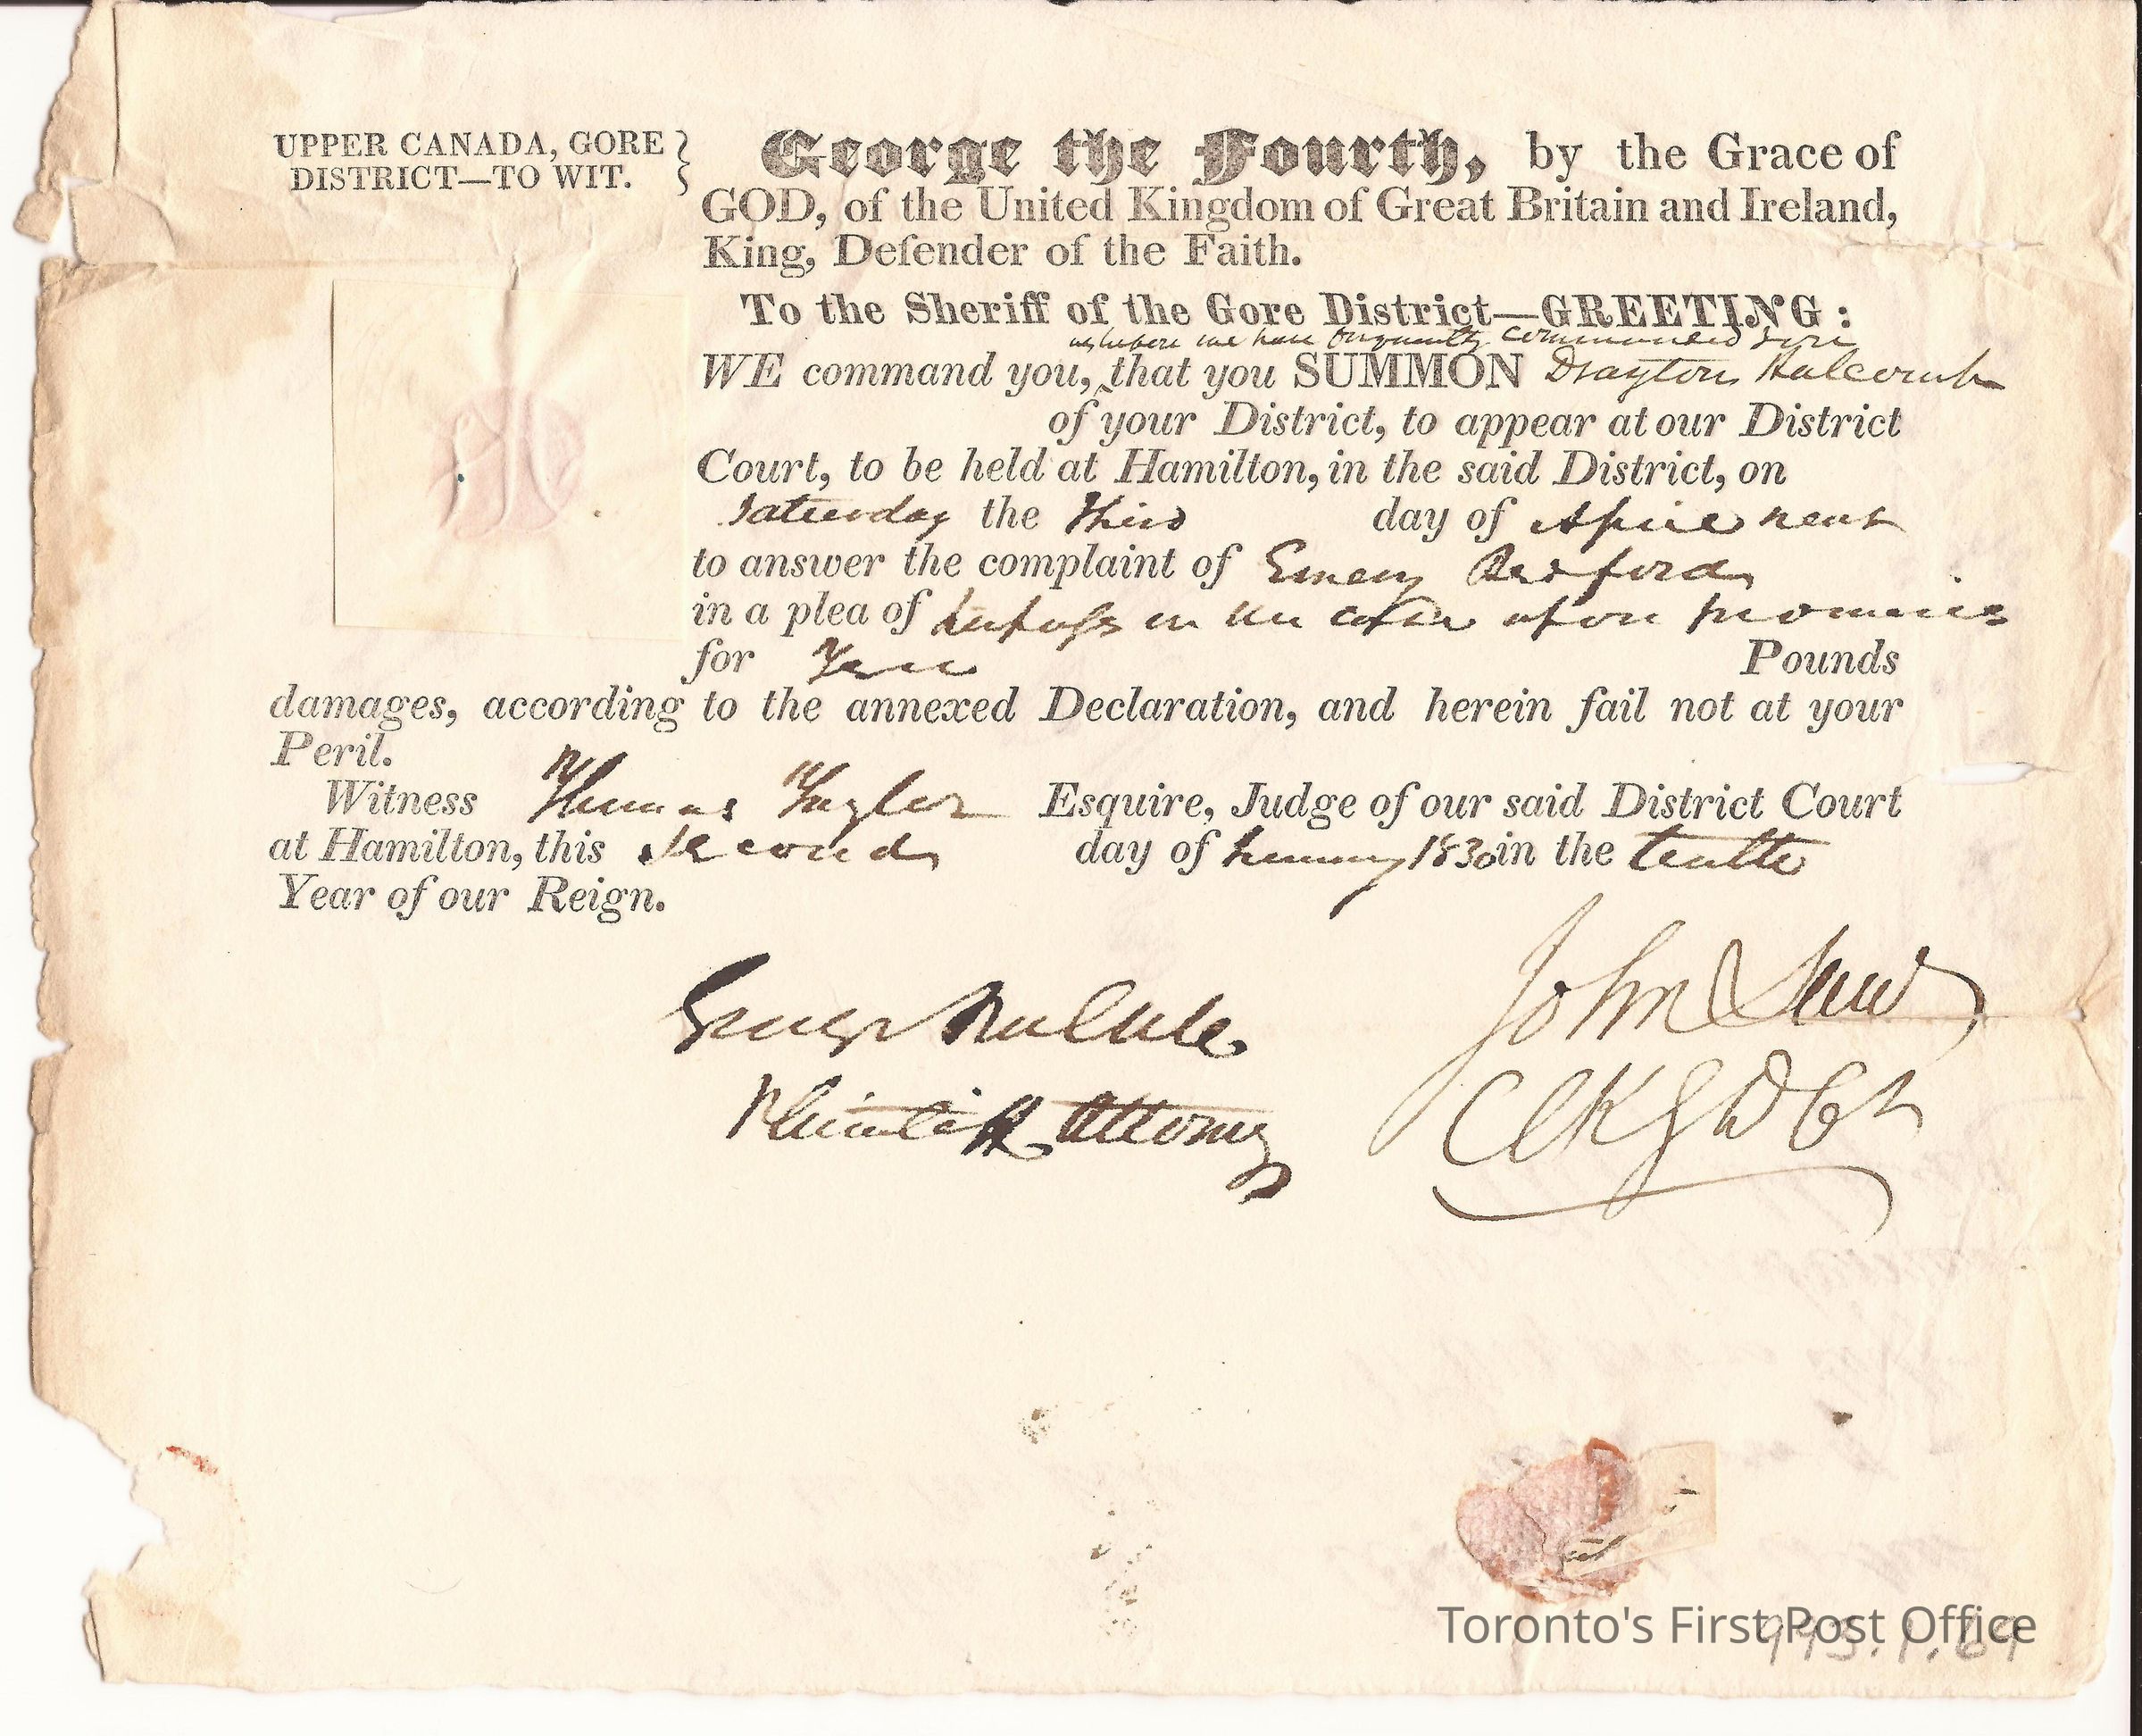 UPPER CANADA, GORE
DISTRICT—TO WIT.
George the Fourth, by the Grace of
GOD, of the United Kingdom of Great Britain and Ireland,
King, Defender of the Faith.
To the Sheriff of the Gore District—GREETING:
as before we have commanded you
WE command you, that you SUMMON Drayton Halcomb
of your District, to appear at our District
Court, to be held at Hamilton, in the said District, on
Saturday the Third day of April next
to answer the complaint of Emery
in a plea of trespass on the case upon promises
for Ten Pounds
damages, according to the annexed Declaration, and herein fail not at your
Peril.
Witness Thomas Taylor Esquire, Judge of our said District Court
at Hamilton, this Second day of January 1830 in the tenth
Year of our Reign.
George
Plaintiff Attorney
John Law
Clk G D Ct
Toronto's First Post Office
993.1.69